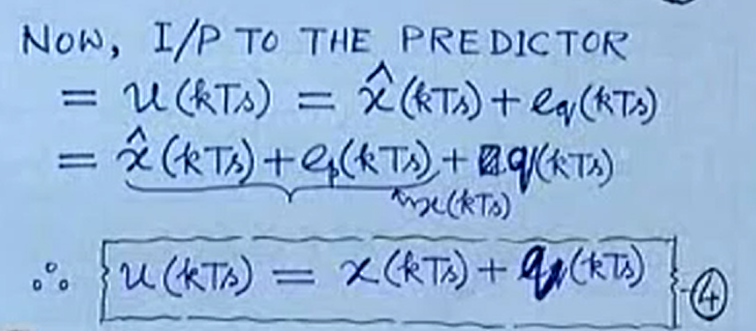 NOW, I/P TO THE PREDICTOR
= u(kTs) = x̂(kTs) + eq(kTs)
= x̂(kTs) + ep(kTs) + q(kTs)
x(kTs)
∴ u(kTs) = x(kTs) + q(kTs) -④